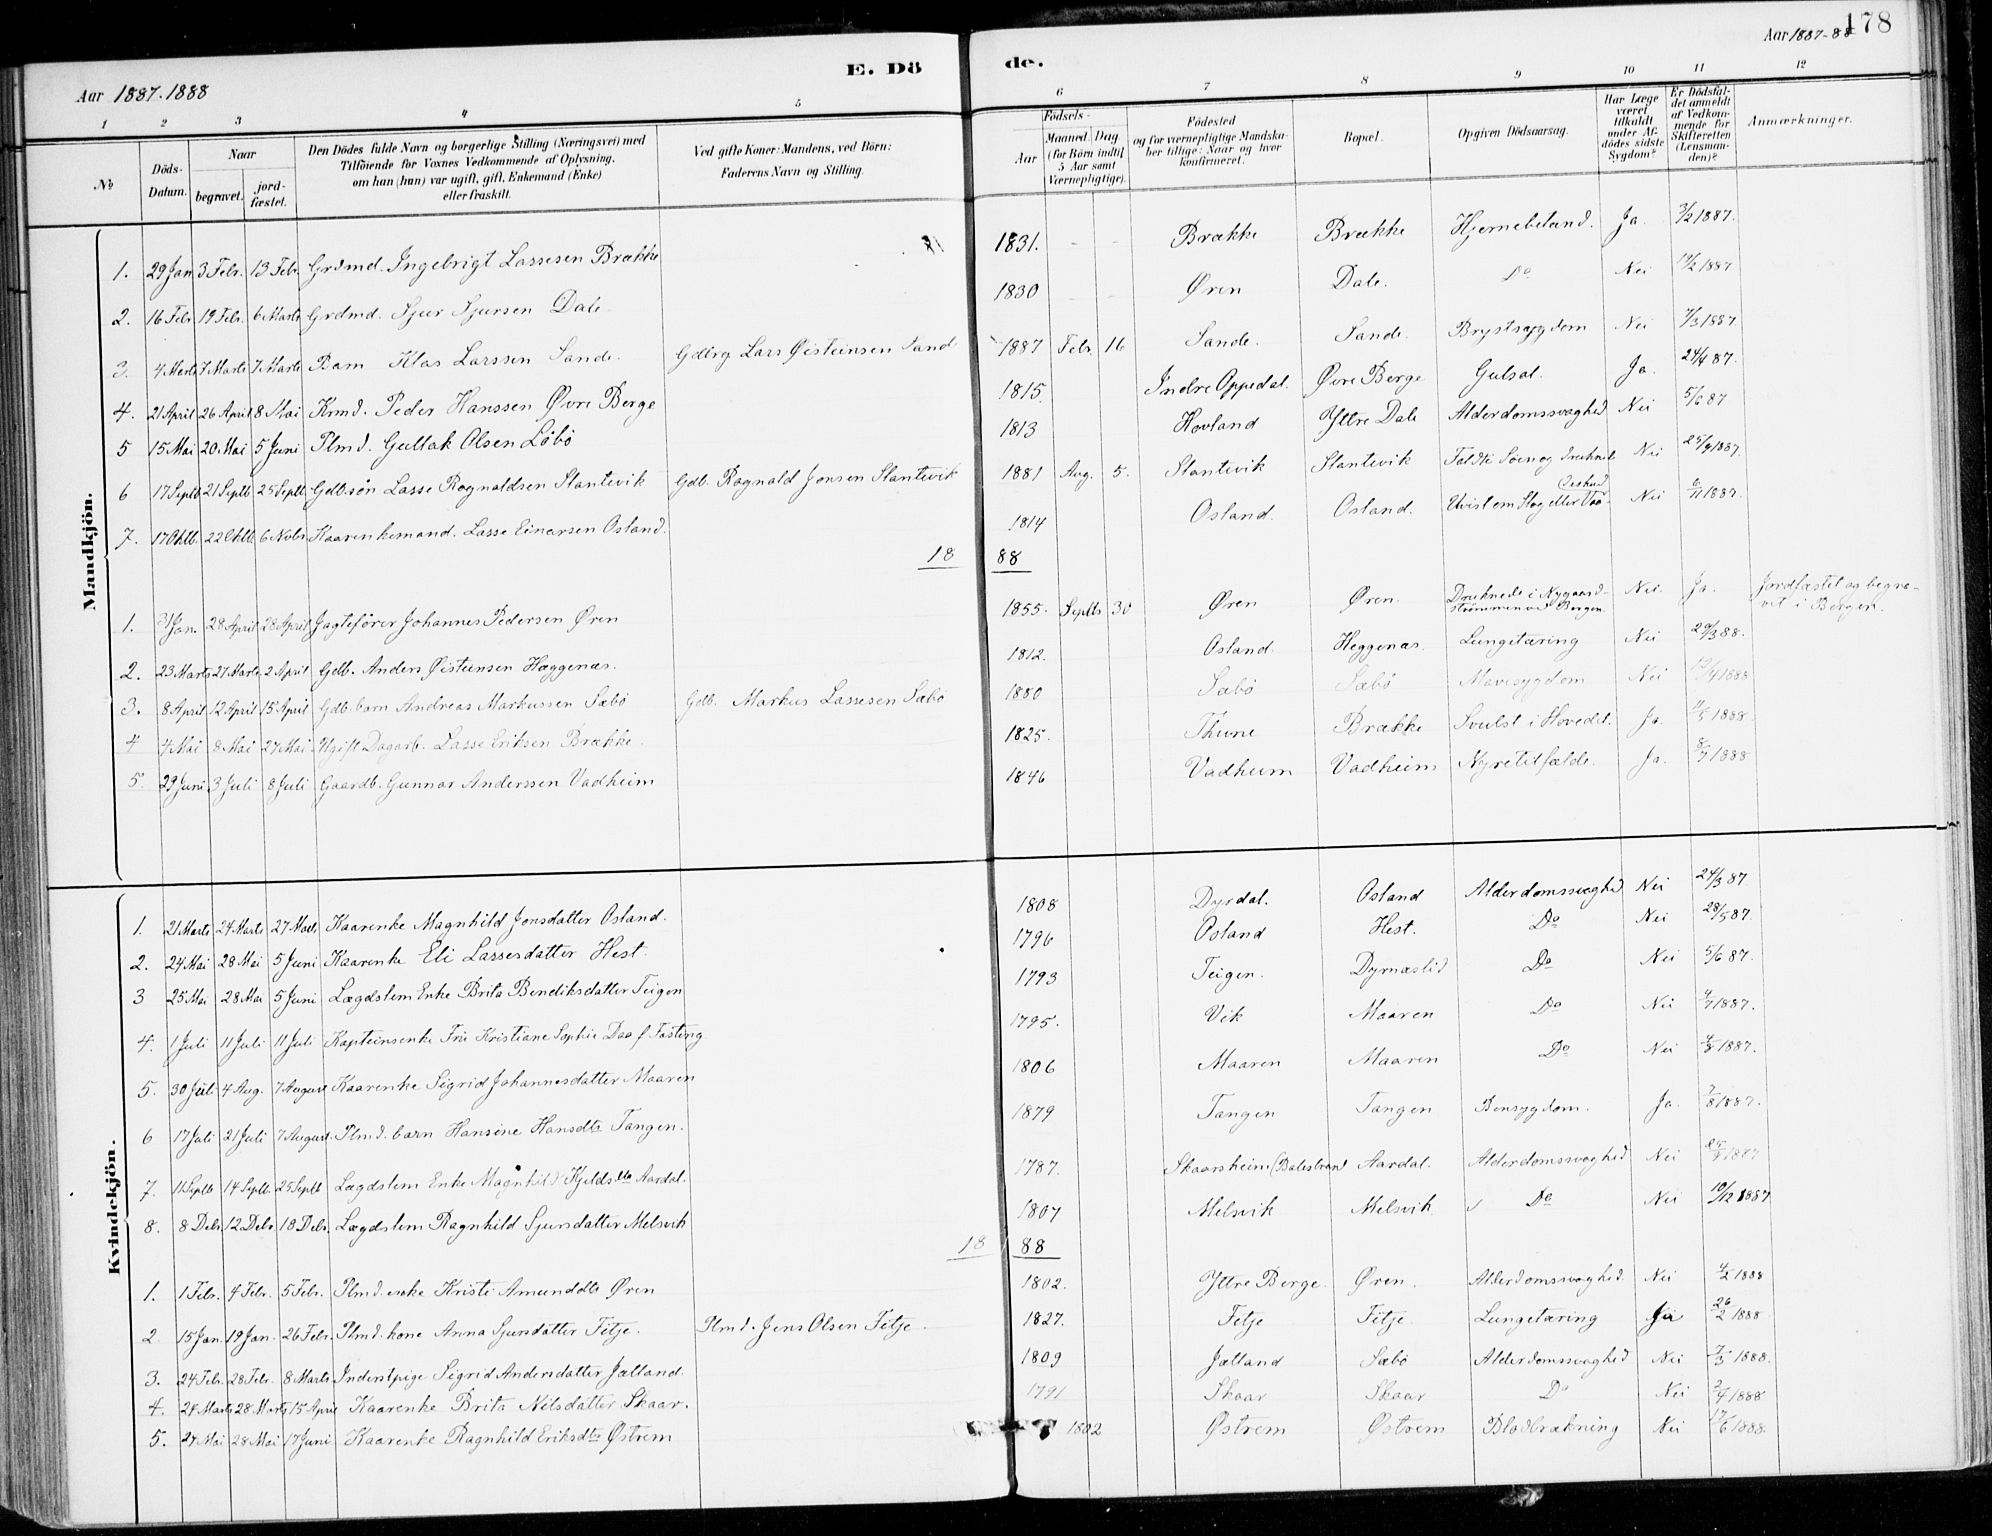 178
Aar 1887-88
E. Döde.
Aar 1887-1888
1 2 3 4 5 6 7 8 9 10 11 12
№
Döds-Datum.
Naar
begravet.
jord-fæstet.
Den Dödes fulde Navn og borgerlige Stilling (Næringsvei) med
Tilföiende for Voxnes Vedkommende af Oplysning,
om han (hun) var ugift, gift, Enkemand (Enke)
eller fraskilt.
Ved gifte Koner: Mandens, ved Börn:
Faderens Navn og Stilling.
Födsels-
Aar
Maaned. Dag.
(for Börn indtil
5 Aar samt
Værnepligtige).
Födested
og for værnepligtige Mandska-
ber tillige: Naar og hvor
konfirmeret.
Bopæl.
Opgiven Dödsaarsag.
Har Læge
været
tilkaldt
under Af-
dödes sidste
Sygdom?
Er Dödsfal-
det anmeldt
af Vedkom-
mende for
Skifteretten
(Lensman-
den)?
Anmærkninger.
Mandkjön.
1. 29 Jan 3 Febr. 13 Febr. Grdmd. Ingebrigt Lassesen Brække 1831. - - Brække Brække Hjernebetænd. Ja. 3/2 1887.
2. 16 Febr 19 Febr. 6 Marts Grdmd. Sjur Sjursen Dale 1830 - - Øren Dale. Do Nei 19/2 1887
3. 4 Marts 7 Marts 7 Marts Barn Klas Larssen Sande. Gdbrg Lars Øisteinsen Sand 1887 Febr. 16 Sande. Sande. Brystsygdom Nei 7/3 1887.
4. 21 April 26 April 8 Mai Krmd. Peder Hanssen Øvre Berge 1815. Indre Oppedal. Øvre Berge Gulsot. Ja. 24/4 87.
5 15 Mai 20 Mai 5 Juni Plmd. Gullak Olsen Løbø 1813 Hovland Yttre Dale Alderdomssvaghed Nei 5/6 87
6 17 Septb 21 Septb 25 Septb Gdb.søn Lasse Ragnaldsen Slantevik Gdb. Ragnald Jonsen Slantevik 1881 Aug. 5. Slantevik Slantevik Faldt i Søen og druknet Nei 25/9 1887
7. 17 Oktb. 22 Oktb. 6 Novbr Kaarenkemand. Lasse Einarsen Osland. 1814 Osland. Osland. Uvist om Slag eller Nei 6/11 1887.
1888
1. Jan. 28 April 28 April Jagtefører Johannes Pedersen Øren 1855. Septb 30 Øren Øren. Druknede i Nygaard-strømmen ved Bergen Nei Ja. Jordfæstet og begra-vet i Bergen.
2. 23 Marts 27 Marts 2 April Gdb. Anders Øisteinsen Hæggenæs. 1812. Osland. Heggenæs. Lungetæring Nei 29/3 88.
3. 8 April 12 April 15 April Gdb. barn Andreas Markussen Sæbø Gdb. Markus Lassesen Sæbø 1880 Sæbø Sæbø Mavesygdom Nei 15/4 1888
4 4 Mai 8 Mai 27 Mai Ugift Dagarb. Lasse Eriksen Brække. 1825. Thune Brække Svulst i Hovedet. Ja. /5 1888.
5. 29 Juni 3 Juli 8 Juli Gaardb. Gunnar Anderssen Vadheim 1846 Vadheim Vadheim Nyretilfælde. Ja. 8/7 1888
Kvindekjön.
1. 21 Marts 24 Marts 27 Marts Kaarenke Magnhild Jonsdatter Osland. 1808 Dyrdal. Osland Alderdomssvaghed Nei 24/3 87
2. 24 Mai 28 Mai 5 Juni Kaarenke Eli Lassesdatter Hest. 1796 Osland Hest. Do Nei 28/5 87.
3 25 Mai 28 Mai 5 Juni Lægdslem Enke Brita Bendiksdatter Teigen 1793 Teigen. Dyrnæslid Do Nei 5/6 87.
4. 1 Juli 11 Juli 11 Juli Kapteinsenke Fru Kristiane Sophie Daa f. Fasting. 1795. Vik Maaren Do Nei 4/7 1887.
5. 30 Juli 4 Aug. 7 August Kaarenke Sigrid Johannesdatter Maaren 1806 Maaren Maaren Do Nei 4/8 1887.
6 17 Juli 21 Juli 7 August. Plmd. barn Hansine Hansdtr Tangen. 1879 Tangen Tangen Bensygdom. Ja. 7/8 1887.
7. 11 Septb 14 Septb. 25 Septb Lægdslem Enke Magnhild Kjeldsdtr Aardal. 1787. Skaarsheim (Balestrand Aardal. Alderdomssvaghed Nei 25/9 1887
8. 8 Debr. 12 Debr. 18 Debr. Lægdslem Ragnhild Sjursdatter Melsvik 1807 Melsvik Melsvik Do Nei 19/12 1887
1888
1. 1 Febr. 4 Febr. 5 Febr. Plmd. enke Kristi Amunddtr Øren 1802. Yttre Berge. Øren. Alderdomssvaghed. Nei 4/2 1888
2. 15 Jan. 19 Jan. 26 Febr. Plmd. kone Anna Sjursdatter Fitje. Plmd. Jens Olsen Fitje. 1827. Fitje Fitje. Lungetæring Ja 26/2 1888
3. 24 Febr. 28 Febr. 8 Marts Inderstpige Sigrid Andersdatter Jælland. 1809 Jælland Sæbø Alderdomssvaghed Nei 7/3 1888.
4. 24 Marts 28 Marts 15 April Kaarenke Brita Nilsdatter Skaar. 1791 Skaar Skaar Do Nei 2/4 1888
5. 24 Mai 28 Mai 17 Juni Kaarenke Ragnhild Eriksdtr Østrem 1802 Østrem Østrem Blodbrækning Nei 17/6 1888.